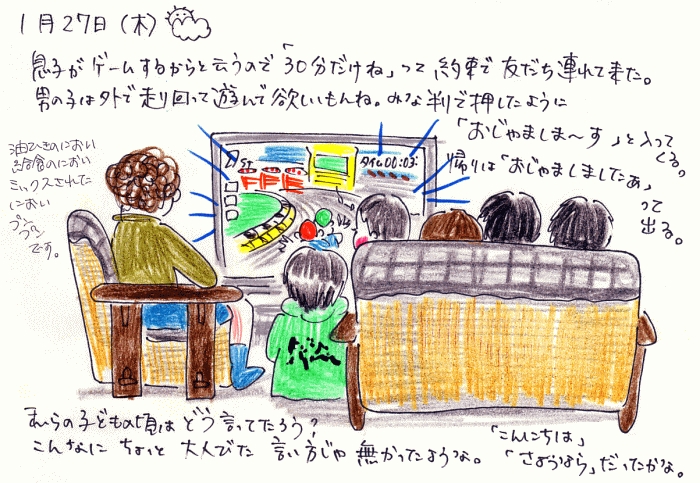 1月27日（木）
息子がゲームするからと云うので「30分だけね」って約束で友だち連れて来た。
男の子は外で走り回って遊んで欲しいもんね。みな判で押したように
「おじゃましま〜す」と入ってくる。
帰りは「おじゃましましたぁ」って出る。
油ひきのにおい
給食のにおい
ミックスされた
におい
プン
プン
です。
タイム00:03:
われらの子どもの頃はどう言ってたろう？
こんなにちょっと大人びた言い方じゃ無かったような。
「こんにちは」
「さようなら」だったかな。